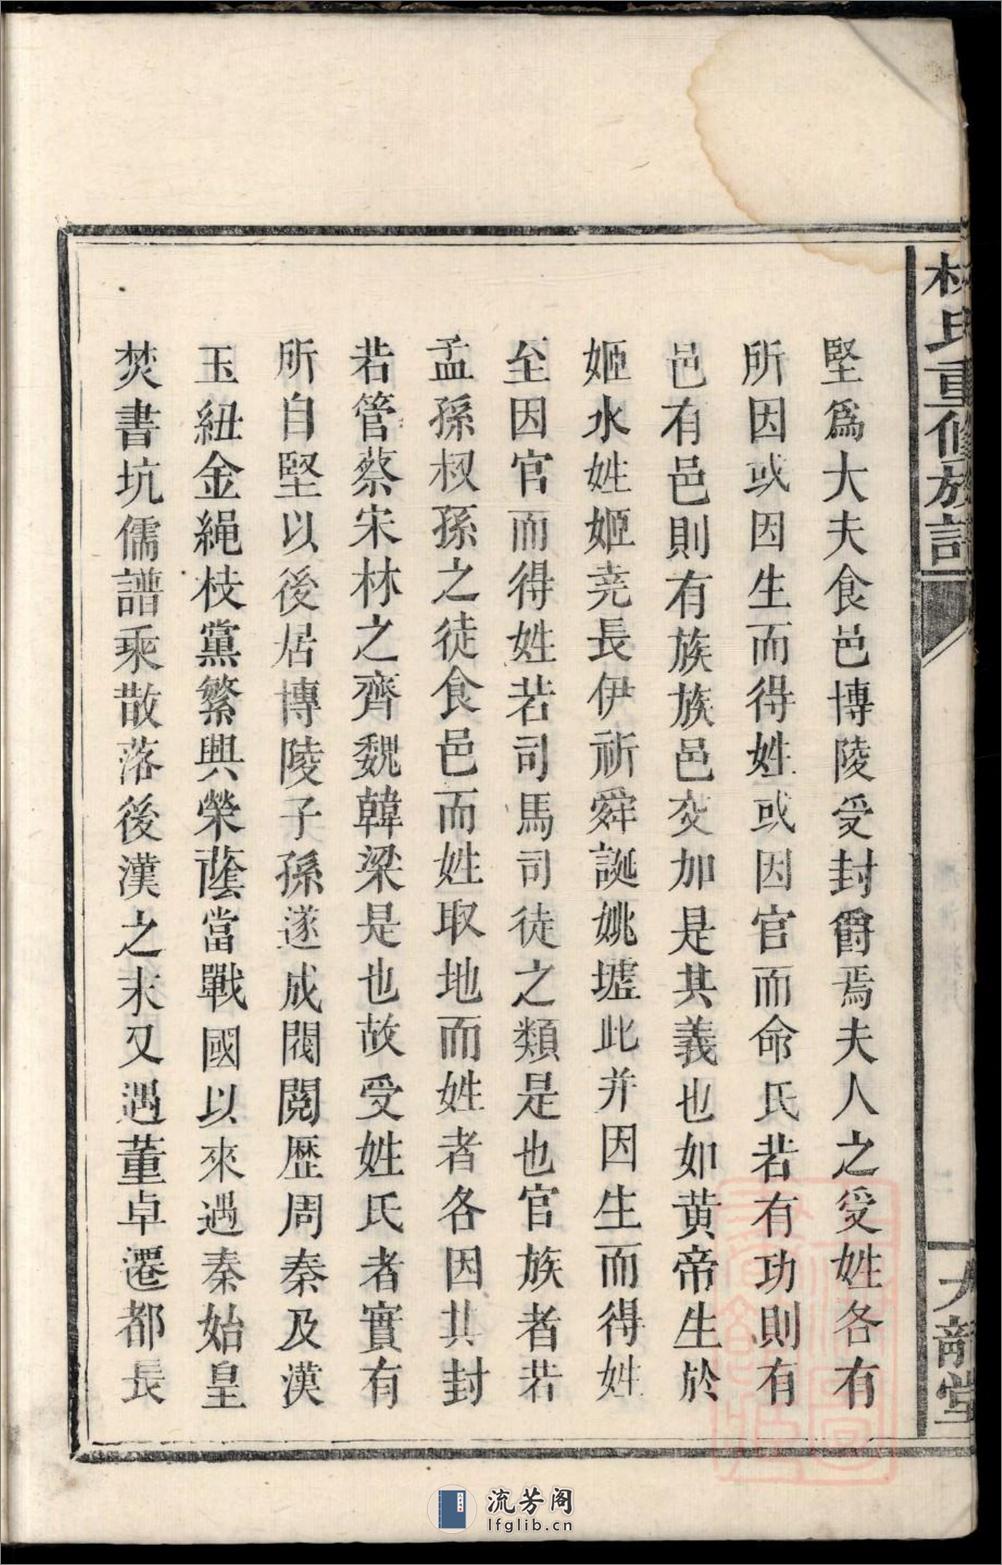 堅爲大夫食邑博陵受封爵焉夫人之受姓各有
所因或因生而得姓或因官而命氏若有功則有
邑有邑則有族族邑交加是其義也如黃帝生於
姬水姓姬堯長伊祈舜誕姚墟此并因生而得姓
至因官而得姓若司馬司徒之類是也官族者若
孟孫叔孫之徒食邑而姓取地而姓者各因其封
若管蔡宋林之齊魏韓梁是也故受姓氏者實有
所自堅以後居博陵子孫遂成閥閱歷周秦及漢
玉紐金繩枝黨繁興榮蔭當戰國以來遇秦始皇
焚書坑儒譜乘散落後漢之末又遇董卓遷都長
林氏重修族譜
流芳阁
lfglib.cn